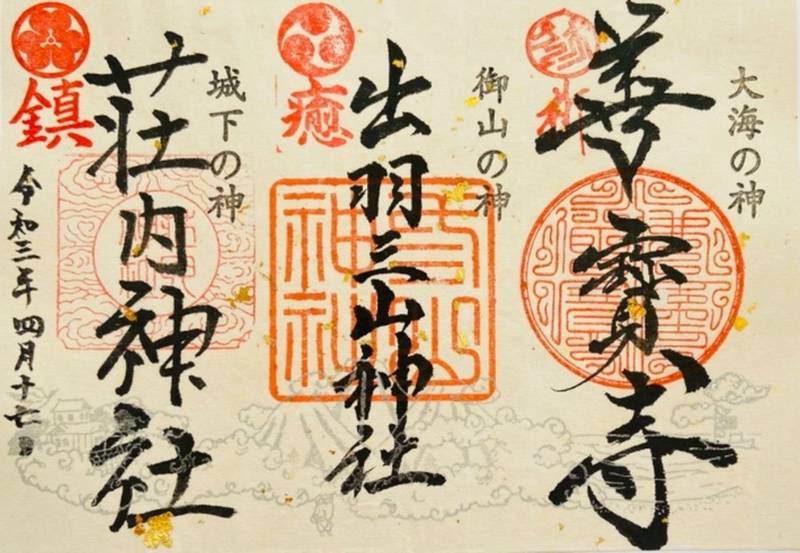 大海の神
善寳寺
御山の神
出羽三山神社
癒
城下の神
荘内神社
鎮
令和三年四月十七日